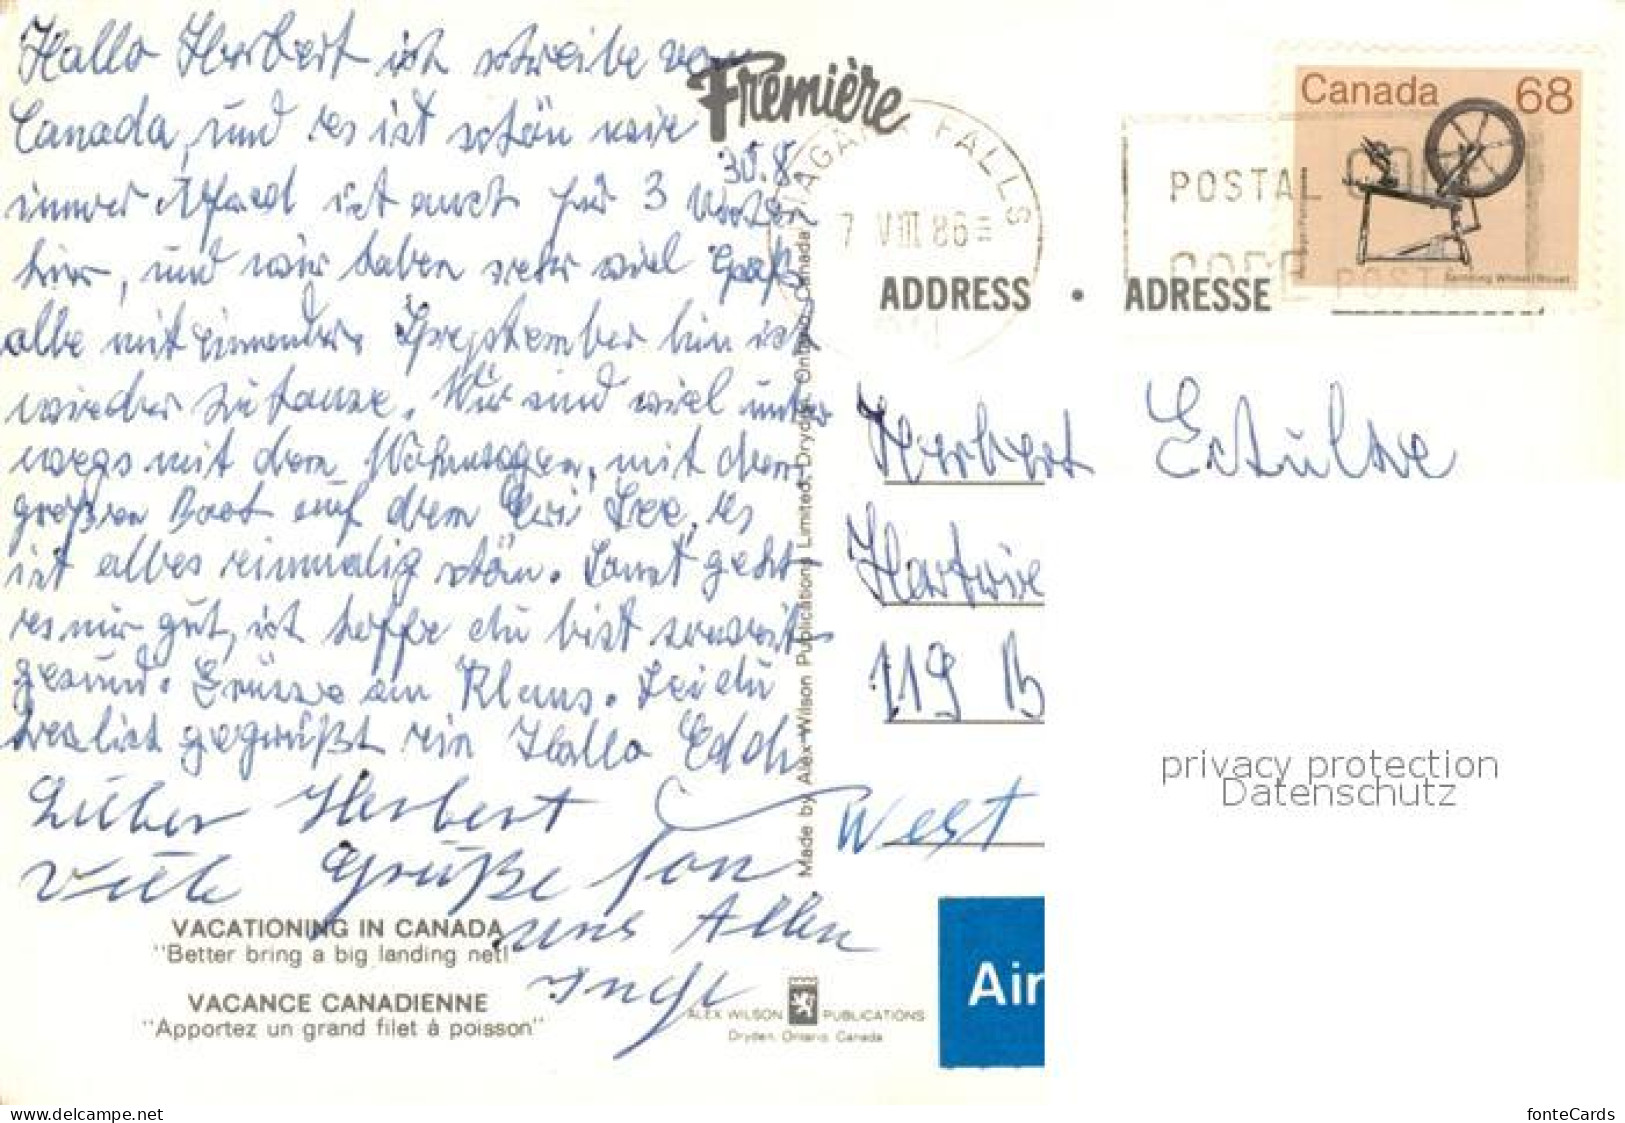 Hallo Herbert ich schreibe von
Canada, und es ist schön wie
immer Alfred ist auch für 3 Wochen
30.8.
hier, und wir haben sehr viel Spaß
alle mit einnender. September bin ich
wieder zu Hause. Wir sind viel unter
wegs mit dem Wohnwagen, mit dem
großen Boot auf dem Eri See, es
ist alles einmalig schön. Sonst geht
es mir gut, ich hoffe du bist soweit
gesund. Grüsse an Klaus. Sei du
herzlich gegrüßt ein Hallo
Lieber Herbert
Viele Grüße von
uns Allen
Première
NIAGARA FALLS
7 VIII 86
Canada 68
POSTAL CODE
CODE POSTAL
Spinning Wheel/Rouet
ADDRESS • ADRESSE
Herbert
119 B
West
Air
Made by Alex Wilson Publications Limited, Dryden, Ontario, Canada
VACATIONING IN CANADA
"Better bring a big landing net!"
VACANCE CANADIENNE
"Apportez un grand filet à poisson"
ALEX WILSON PUBLICATIONS
Dryden, Ontario, Canada
privacy protection
Datenschutz
www.delcampe.net
fonteCards